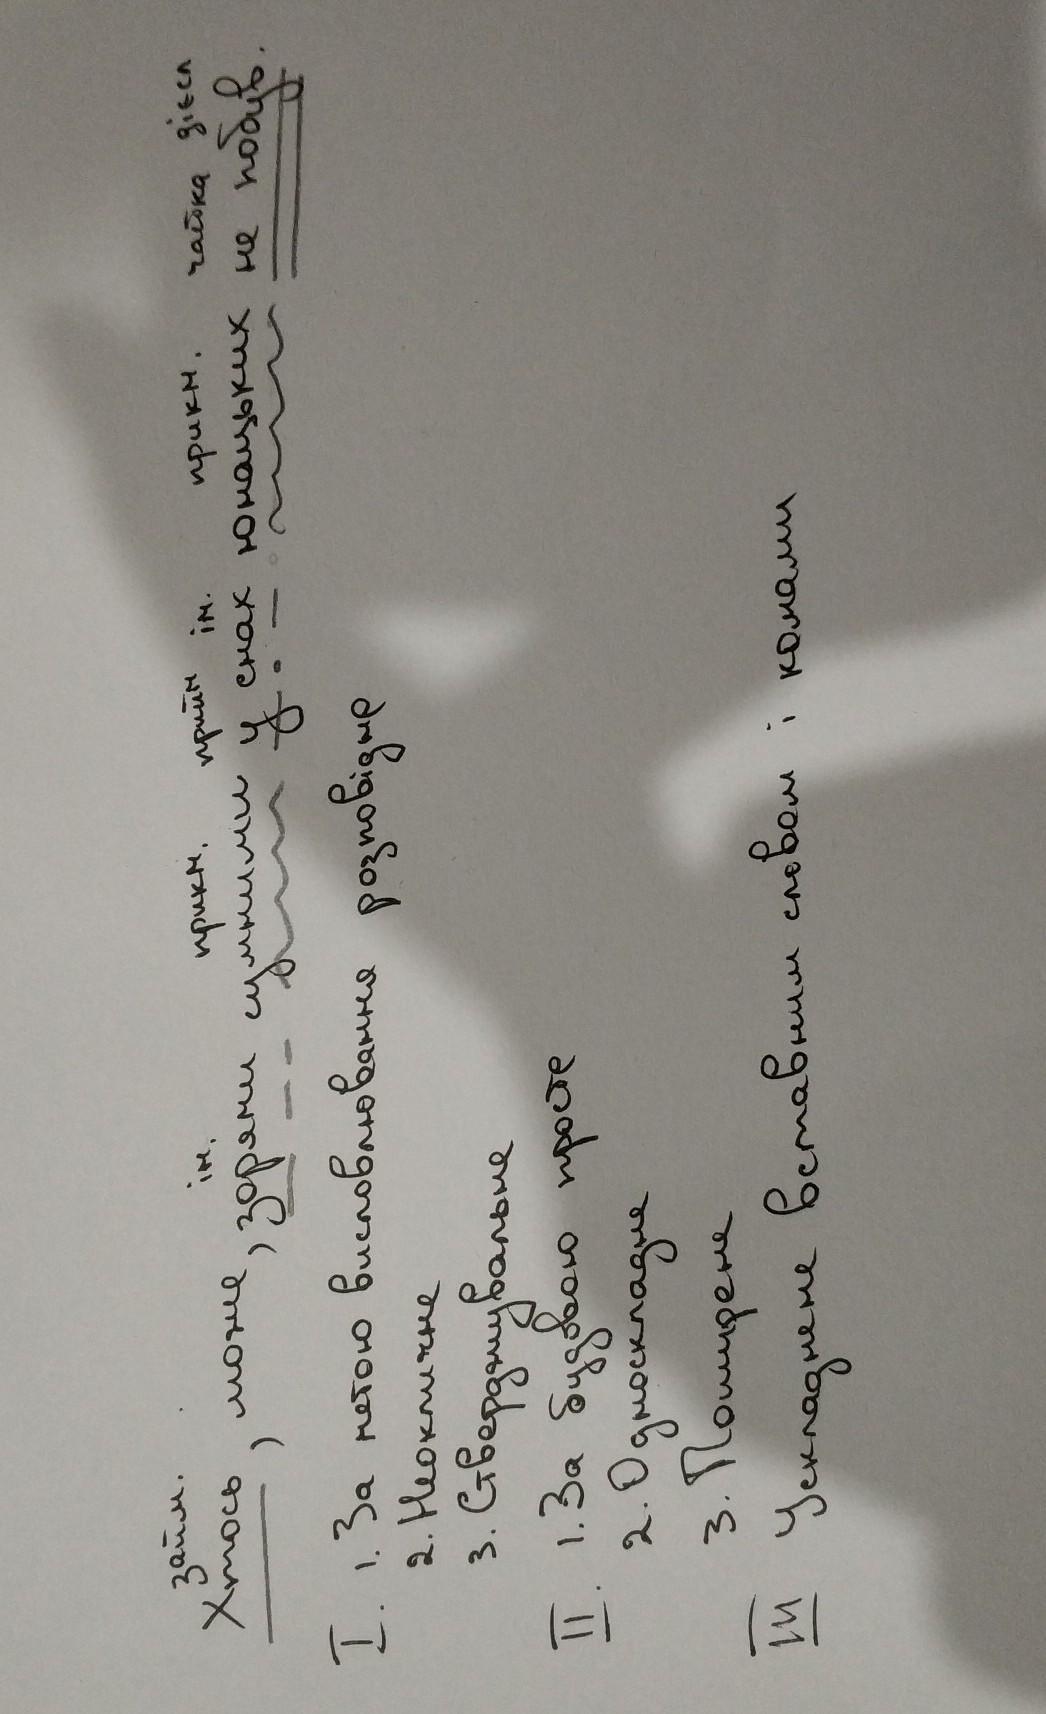 займ. ін. прикм. прийм ін. прикм. чатка дієсл
Хтось, може, зорями сумними у снах юнацьких не побув.
I. 1. За метою висловлювання розповідне
2. Неоклична
3. Стверджувальне
II. 1. За будовою просте
2. Односкладне
3. Поширене
III Ускладнене вставним словом і комами